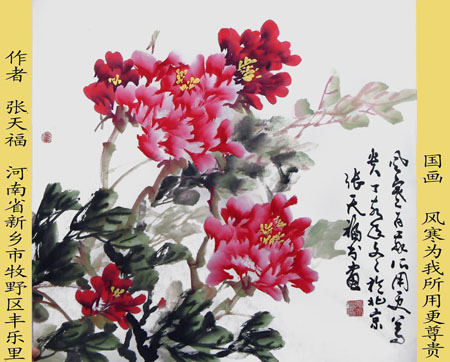 国画 风寒为我所用更尊贵
风寒为我所用更尊
贵丁亥年冬之于北京
张天福书画
作者 张天福 河南省新乡市牧野区丰乐里